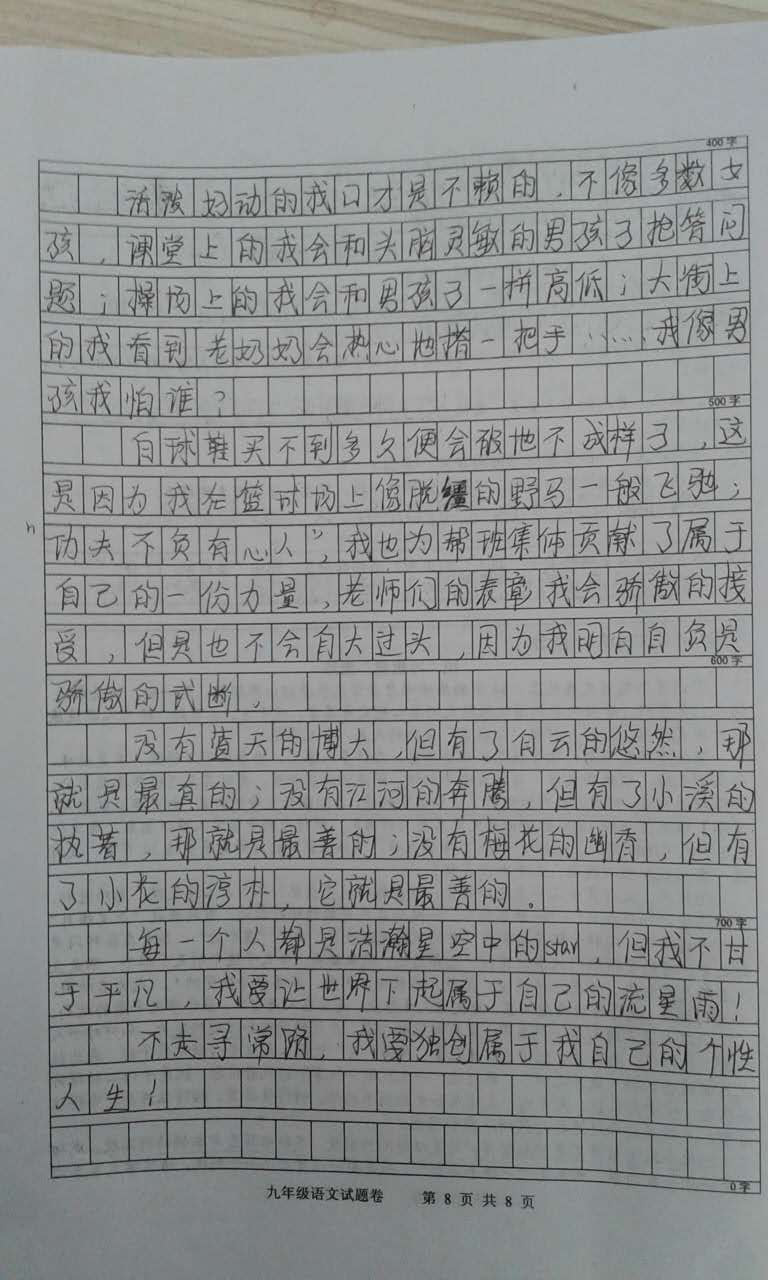 400字
活泼好动的我口才是不赖的，不像多数女
孩，课堂上的我会和头脑灵敏的男孩子抢答问
题；操场上的我会和男孩子一拼高低；大街上
的我看到老奶奶会热心地搭一把手……我像男
孩我怕谁？
500字
白球鞋买不到多久便会破地不成样子，这
是因为我在篮球场上像脱缰的野马一般飞驰；
功夫不负有心人”，我也为帮班集体贡献了属于
自己的一份力量，老师们的表章我会骄傲的接
受，但是也不会自大过头，因为我明白自负是
600字
骄傲的武断，
没有蓝天的博大，但有了白云的悠然，那
就是最真的；没有江河的奔腾，但有了小溪的
执着，那就是最善的；没有梅花的幽香，但有
了小花的淳朴，它就是最善的。
700字
每一个人都是浩瀚星空中的star，但我不甘
于平凡，我要让世界下起属于自己的流星雨！
不走寻常路，我要独创属于我自己的个性
人生！
0字
九年级语文试题卷 第 8 页 共 8 页